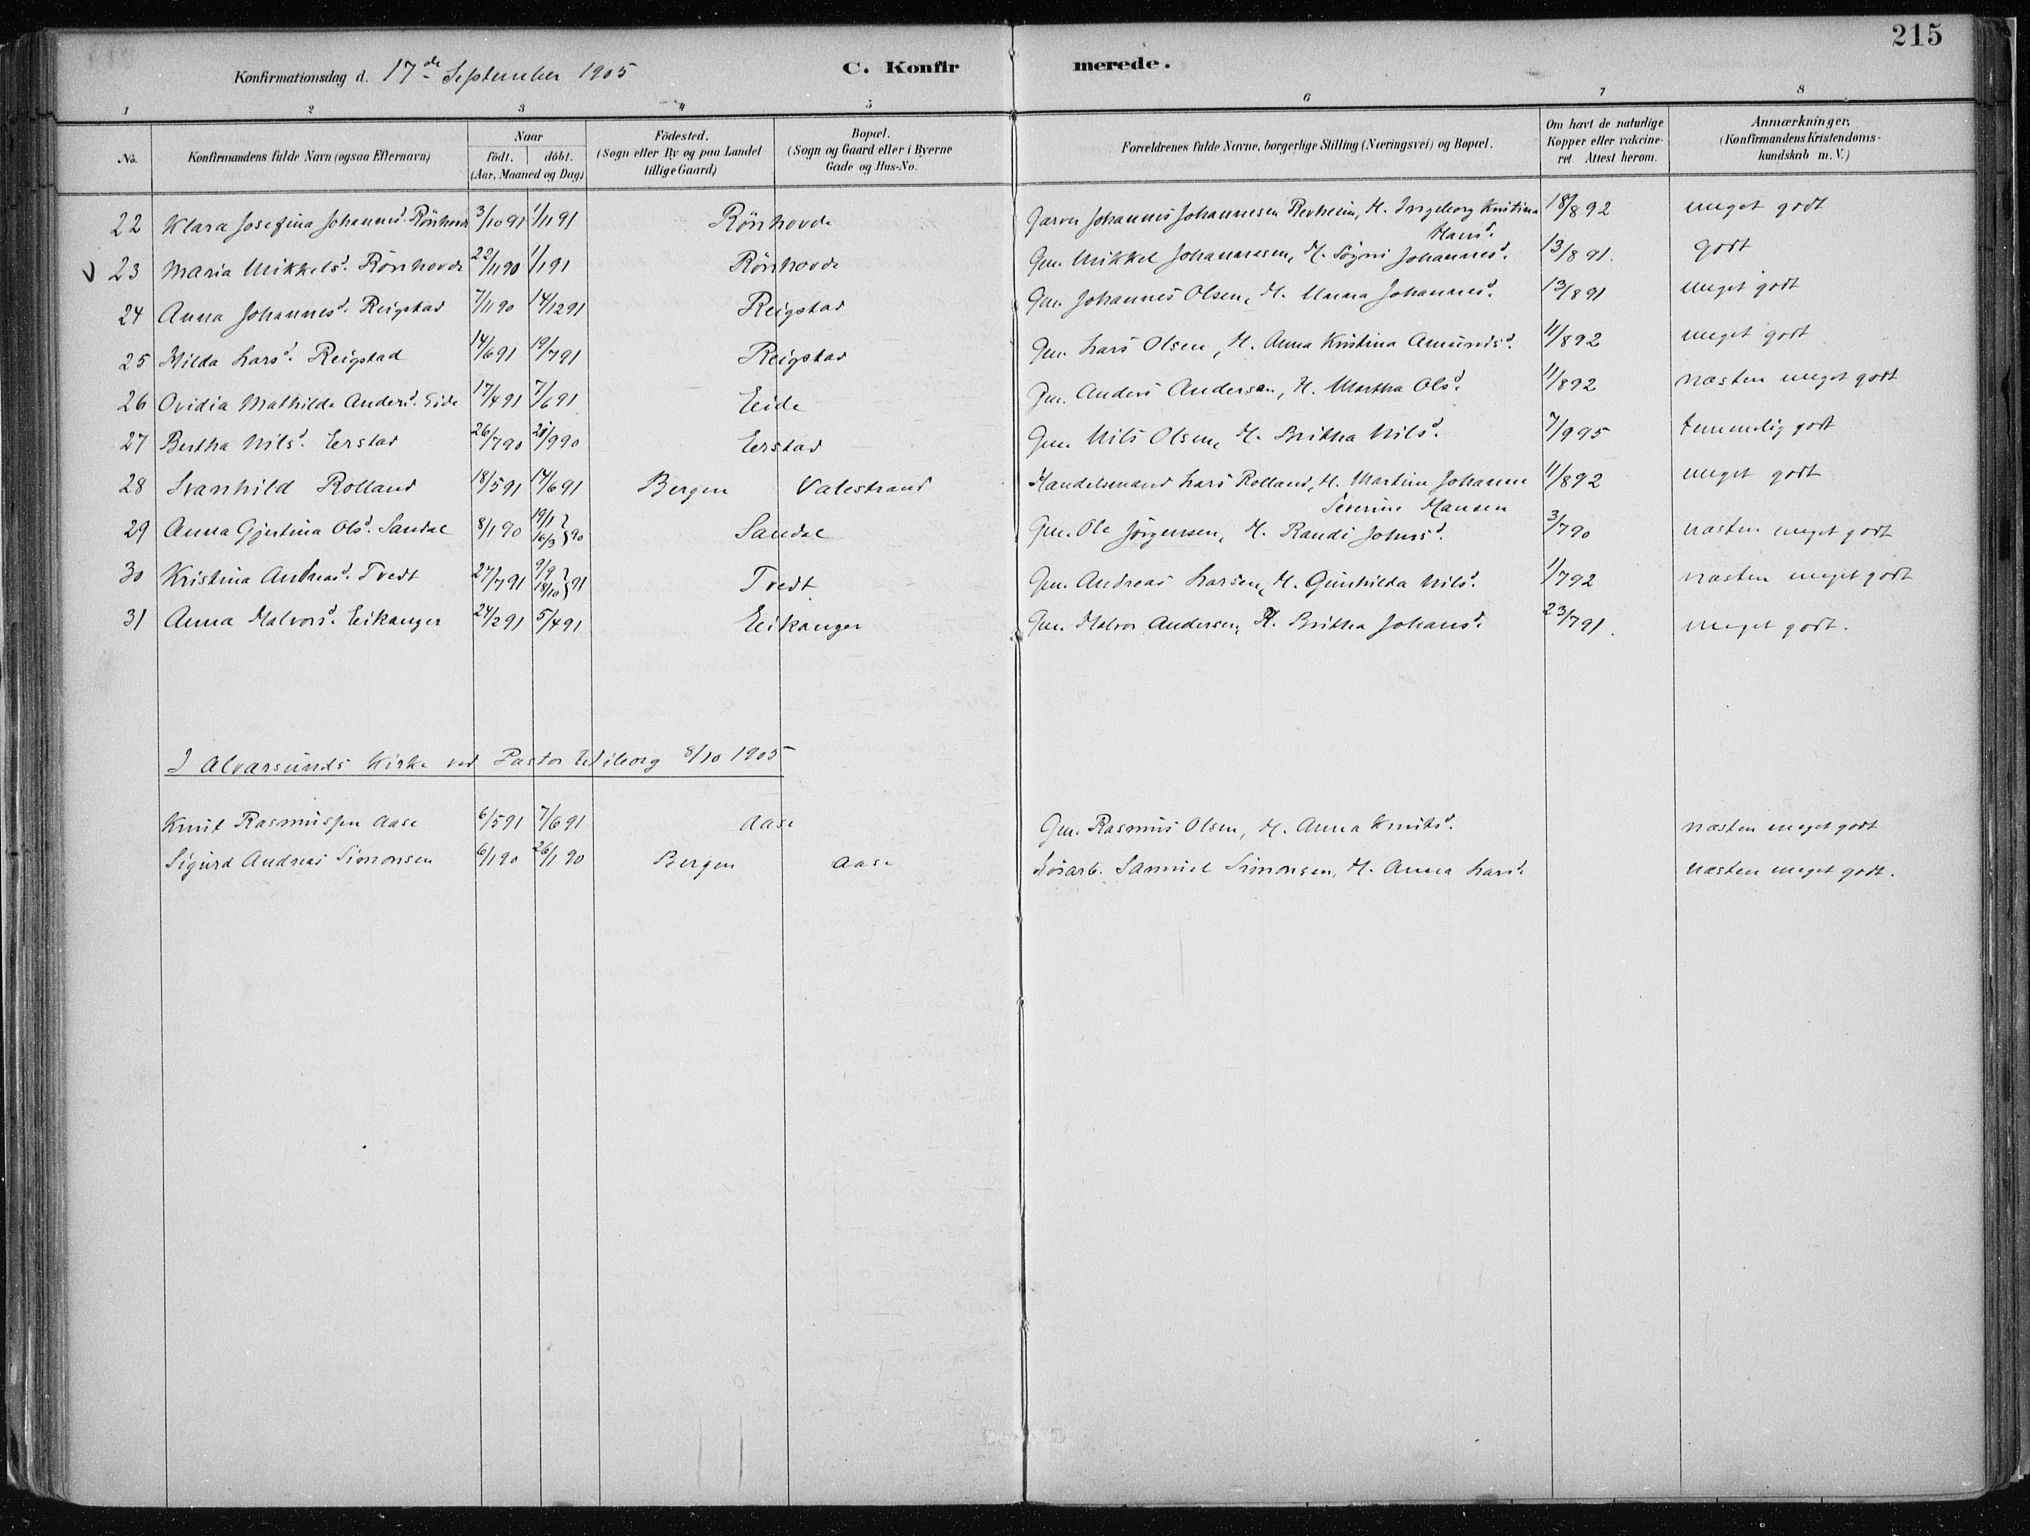 215
Konfirmationsdag d. 17de September 1905 C. Konfirmerede.
1 2 3 4 5 6 7 8
No. Konfirmandens fulde Navn (ogsaa Efternavn) Naar født. døbt. (Aar, Maaned og Dag) Fødested. (Sogn eller By og paa Landet tillige Gaard) Bopæl. (Sogn og Gaard eller i Byerne Gade og Hus-No. Forældrenes fulde Navne, borgerlige Stilling (Næringsvei) og Bopæl. Om havt de naturlige Kopper eller vakcineret Attest herom. Anmærkninger, (Konfirmandens Kristendomskundskab m. V.)
22 Klara Josefina Johannesd. Rönhovde 3/10 91 1/11 91 Rönhovde Garver Johannes Johannesen Revheim, H. Ingeborg Kristina Hansd. 18/8 92 meget godt
23 Maria Mikkelsd. Rönhovde 22/11 90 1/1 91 Rönhovde Gm. Mikkel Johannesen, H. Sögni Johannesd. 13/8 91. godt
24 Anna Johannesd. Reigstad 7/11 90 14/12 91 Reigstad Gm. Johannes Olsen, H. Unna Johannesd. 13/8 91 meget godt
25 Hilda Larsd. Reigstad 14/6 91 19/7 91 Reigstad Gm. Lars Olsen, H. Anna Kristina Amundsd. 11/8 92 meget godt
26 Ovidia Mathilde Andersd. Eide 17/4 91 7/6 91 Eide Gm. Anders Andersen, H. Martha Olsd. 11/8 92 næsten meget godt
27 Bertha Nilsd. Eerstad 26/7 90 21/9 90 Eerstad Gm. Nils Olsen, H. Britha Nilsd. 7/9 95 temmelig godt
28 Svanhild Rolland 18/5 91 14/6 91 Bergen Valestrand Handelsmand Lars Rolland, H. Martine Johanne Severine Hansen 11/8 92 meget godt
29 Anna Gjertina Olsd. Sandal 8/1 90 19/1 16/3 } 90 Sandal Gm. Ole Jörgensen, H. Randi Johnsd. 3/7 90 næsten meget godt
30 Kristina Andreasd. Tvedt 27/7 91 9/9 18/10 } 91 Tvedt Gm. Andreas Larsen, H. Gunhilda Nilsd. 1/7 92 næsten meget godt
31 Anna Halvorsd. Eikanger 24/2 91 5/4 91 Eikanger Gm. Halvor Andersen, H. Britha Johansd. 23/7 91. meget godt.
I Alversunds Kirke ved Pastor Wiborg 8/10 1905
Knut Rasmussen Aase 6/5 91 7/6 91 Aase Gm. Rasmus Olsen, H. Anna Knutsd. næsten meget godt
Sigurd Andreas Simonsen 6/1 90 26/1 90 Bergen Aase Løsarb. Samuel Simonsen, H. Anna Larsd. næsten meget godt.